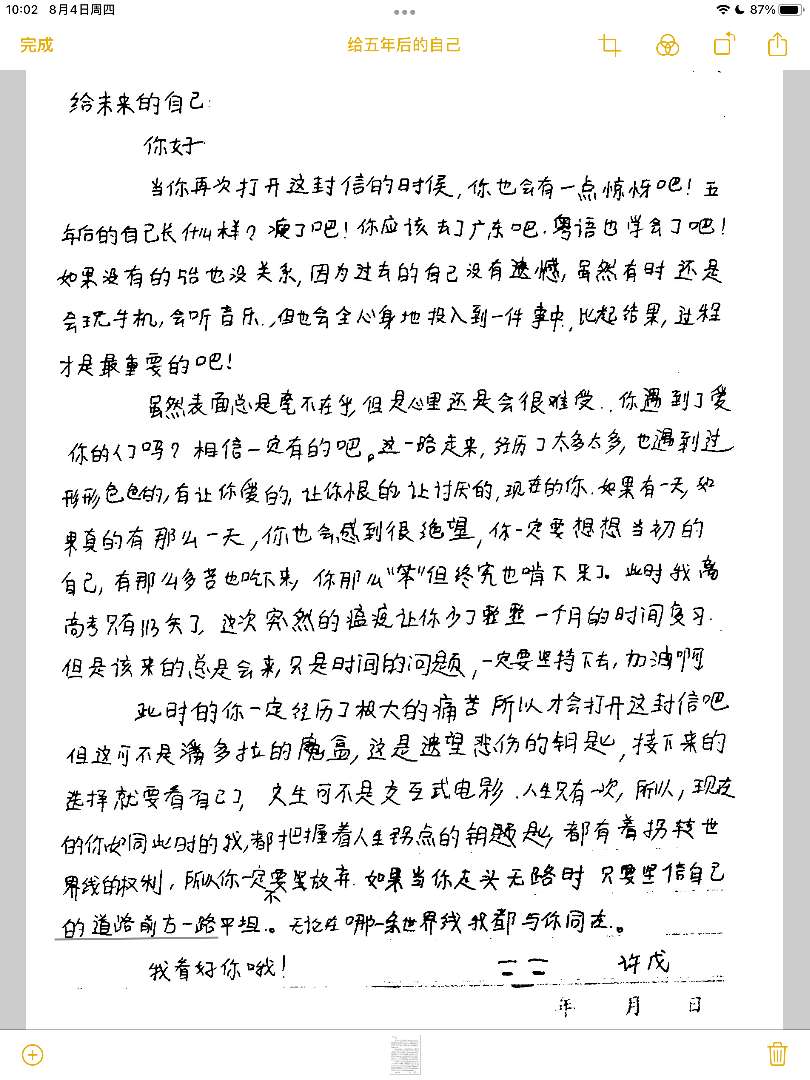 10:02 8月4日周四
87%
完成
给五年后的自己
给未来的自己:
你好
当你再次打开这封信的时候,你也会有一点惊讶吧!五
年后的自己长什么样?瘦了吧!你应该去了广东吧.粤语也学会了吧!
如果没有的话也没关系,因为过去的自己没有遗憾,虽然有时还是
会玩手机,会听音乐.,但也会全心身地投入到一件事中,比起结果,过程
才是最重要的吧!
虽然表面总是毫不在乎,但是心里还是会很难受..你遇到了爱
你的人了吗?相信一定有的吧。这一路走来,经历了太多太多,也遇到过
形形色色的,有让你爱的,让你恨的,让讨厌的,现在的你.如果有一天,如
果真的有那么一天,你也会感到很绝望,你一定要想想当初的
自己,有那么多苦也吃下来,你那么"笨"但终究也啃下来了。此时我离
高考只有113天了,这次突然的瘟疫让你少了整整一个月的时间复习.
但是该来的总是会来,只是时间的问题,一定要坚持下去,加油啊
此时的你一定经历了极大的痛苦所以才会打开这封信吧
但这可不是潘多拉的魔盒,这是遗望悲伤的钥匙,接下来的
选择就要看自己了, 人生可不是交互式电影.人生只有一次,所以,现在
的你如同此时的我,都把握着人生拐点的钥匙,都有着扭转世
界线的权利,所以你一定不要放弃.如果当你走头无路时 只要坚信自己
的道路前方一路平坦.。无论在哪一条世界线我都与你同在.。
我看好你哦!
许戊
年 月 日